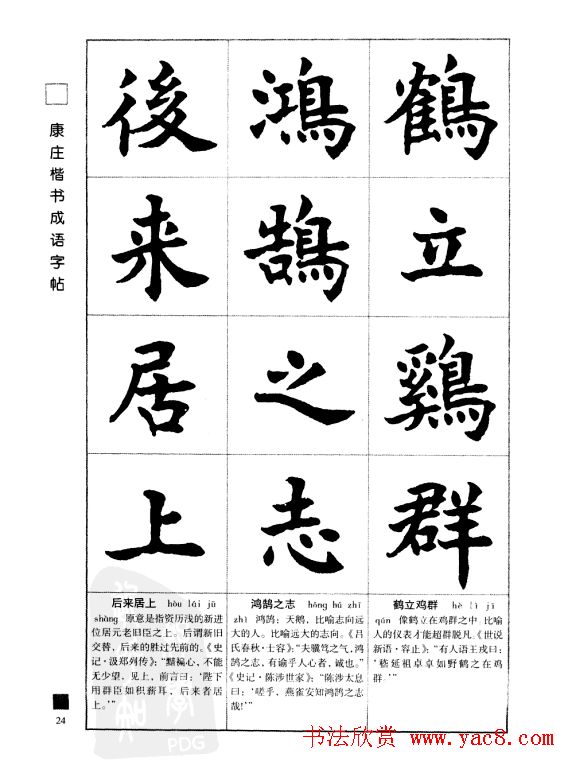 康庄楷书成语字帖
鶴立鷄群
鴻鵠之志
後来居上
后来居上 hòu lái jū
shàng 原意是指资历浅的新进
位居元老旧臣之上。后谓新旧
交替，后来的胜过先前的。《史
记·汲郑列传》：“黯褊心，不能
无少望，见上，前言曰：‘陛下
用群臣如积薪耳，后来者居
上。’”
鸿鹄之志 hóng hú zhī
zhì 鸿鹄：天鹅，比喻志向远
大的人。比喻远大的志向。《吕
氏春秋·士容》：“夫骥骜之气，鸿
鹄之志，有谕乎人心者，诚也。”
《史记·陈涉世家》：“陈涉太息
曰：‘嗟乎，燕雀安知鸿鹄之志
哉!’”
鹤立鸡群 hè lì jī
qún 像鹤立在鸡群之中. 比喻
人的仪表才能超群脱凡。《世说
新语·容止》：“有人语王戎曰：
‘嵇延祖卓卓如野鹤之在鸡
群.’”
24
PDG
书法欣赏 www.yac8.com